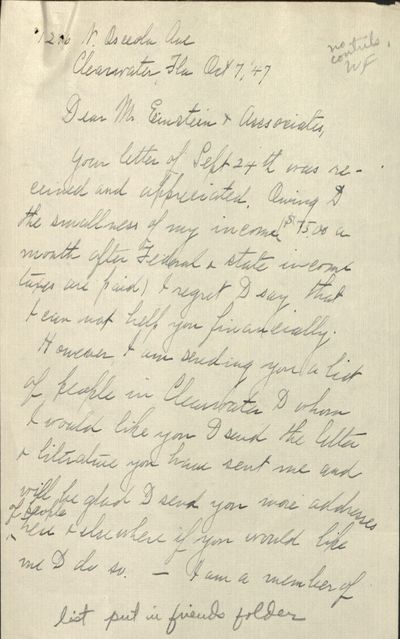 1220 N. Osceola Ave
Clearwater, Fla Oct 7, '47
no
contrib.
WF
Dear Mr. Einstein & Associates,
Your letter of Sept 24th was re-
ceived and appreciated. Owing to
the smallness of my income ($75.00 a
month after Federal & state income
taxes are paid) I regret to say that
I can not help you financially.
However I am sending you a list
of people in Clearwater to whom
I would like you to send the letter
& literature you have sent me and
will be glad to send you more addresses
of people
here & elsewhere if you would like
me to do so. — I am a member of
list put in friends folder